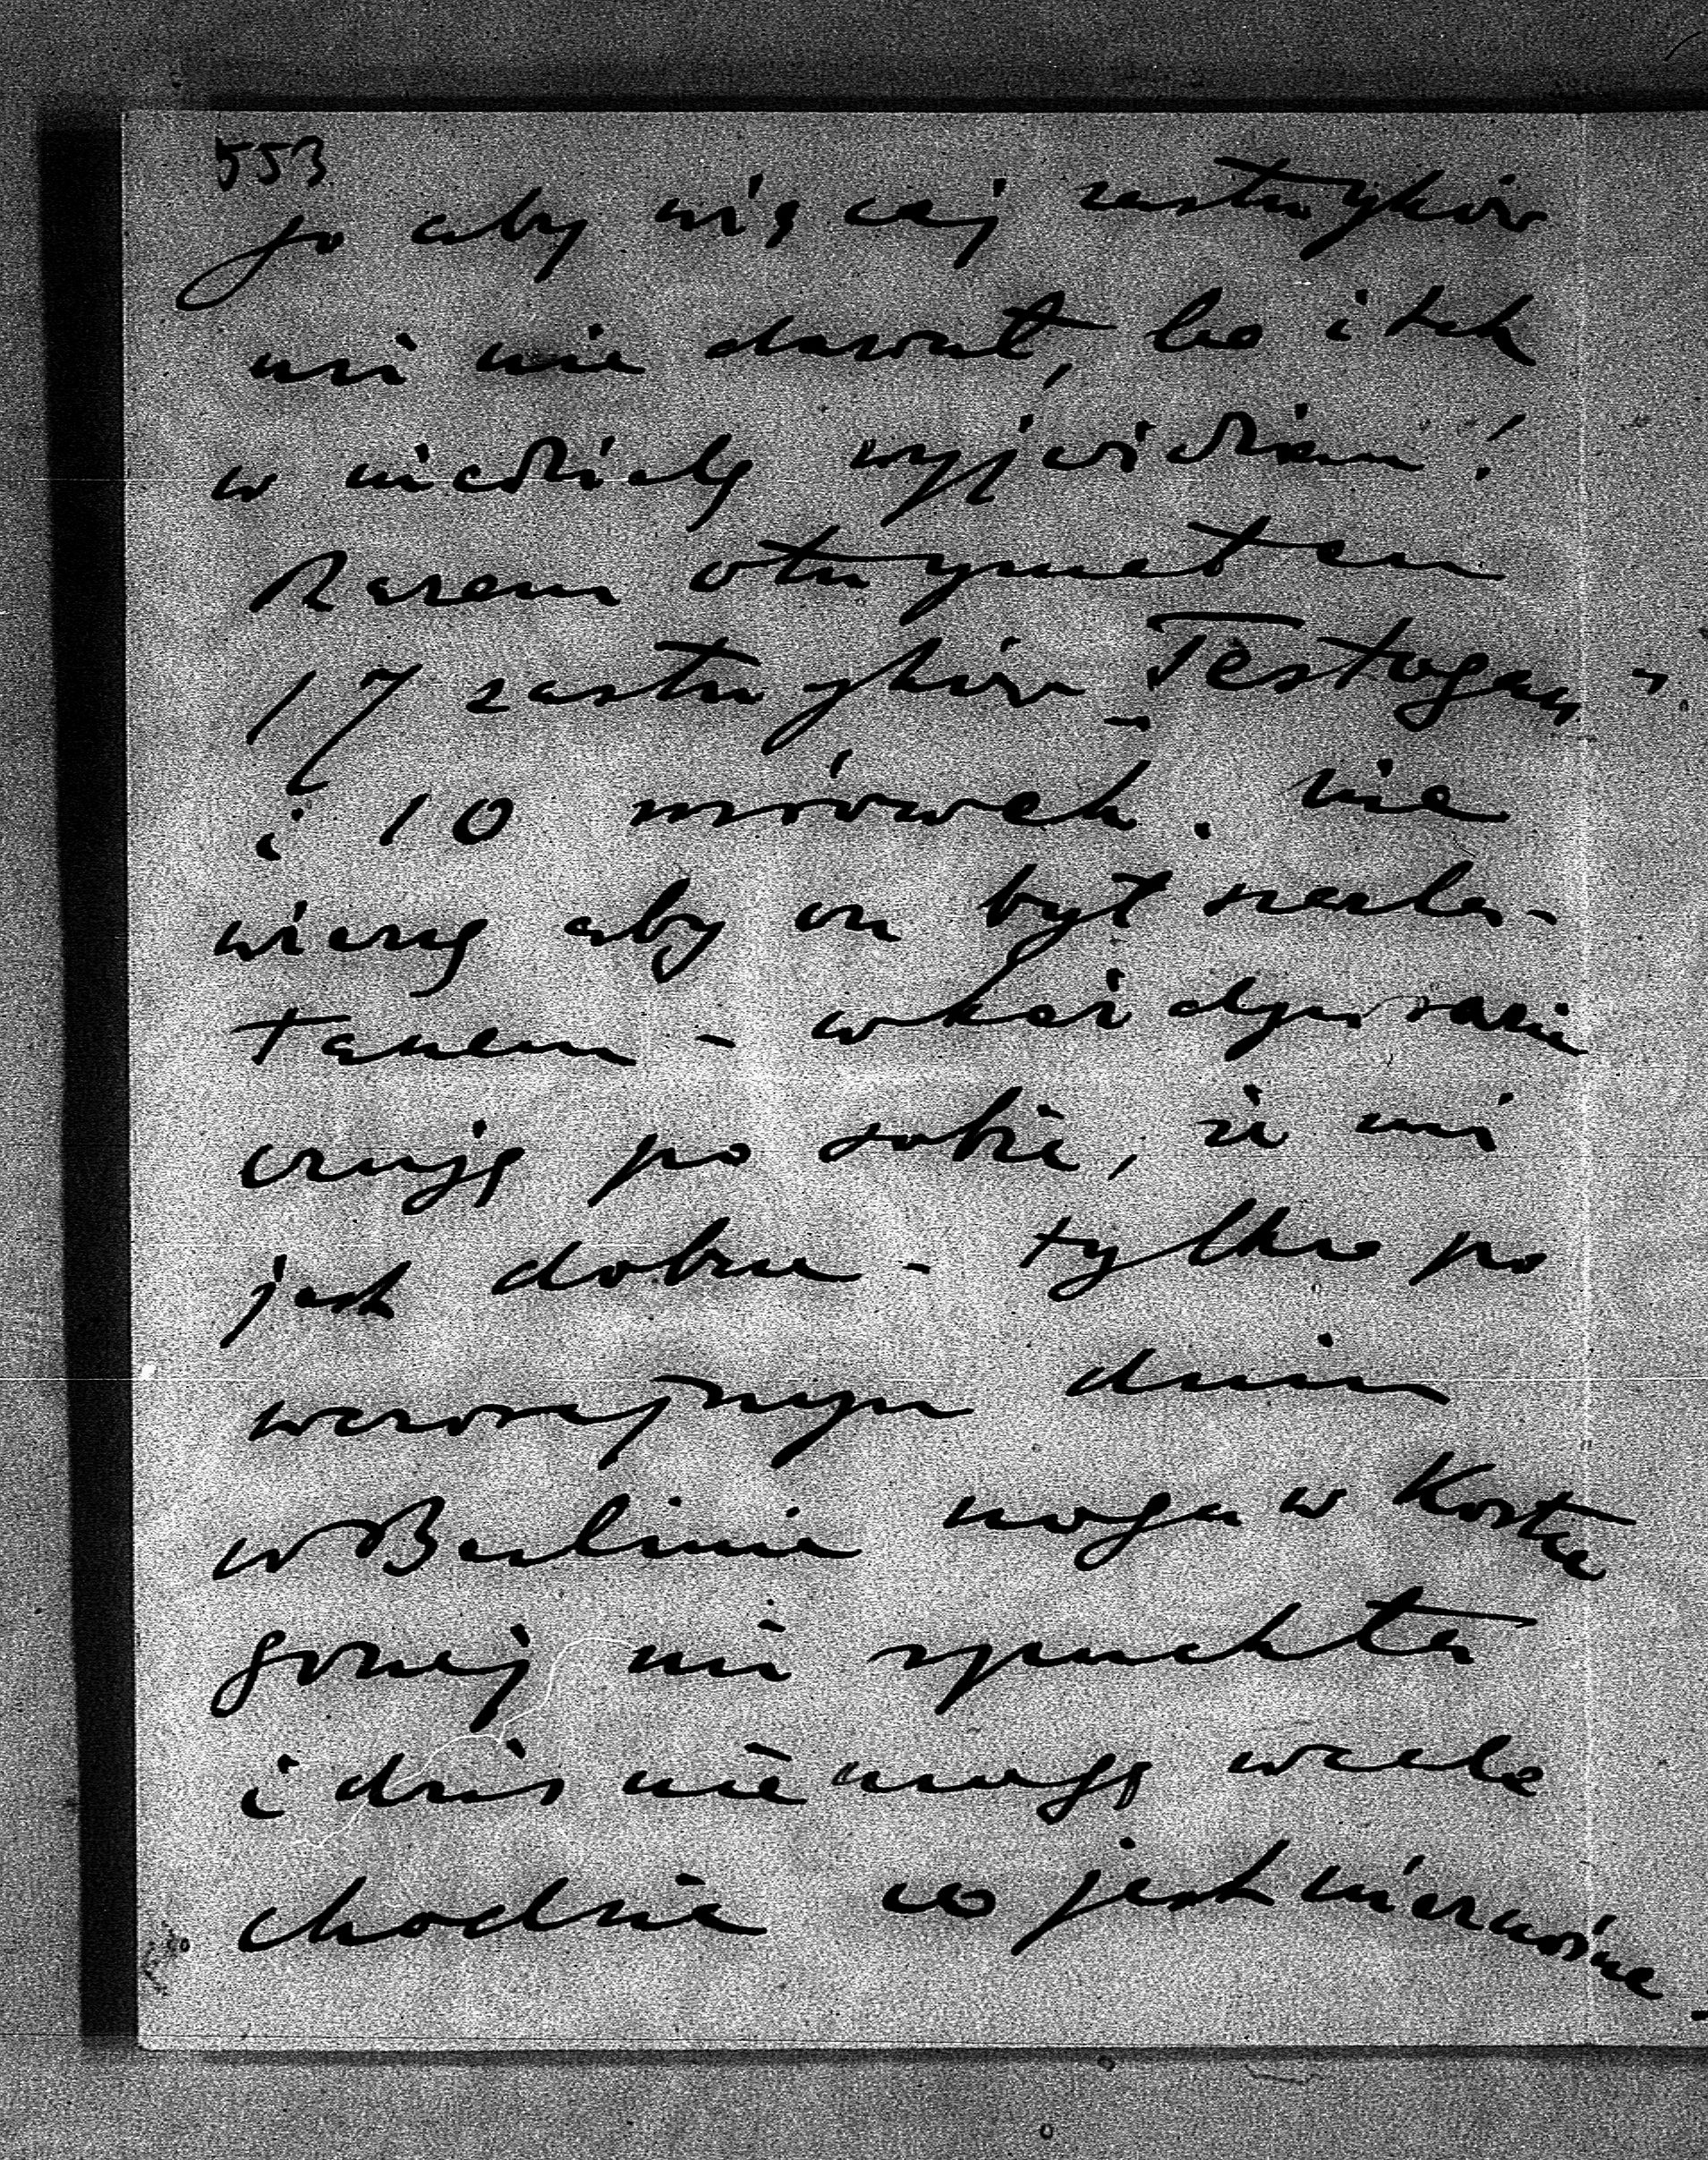 553
go aby więcej zastrzyków
mi nie dawał, bo i tak
w niedzielę wyjeżdżam!
Razem otrzymałem
17 zastrzyków „Testogan”
i 10 mrówek. Nie
wierzę aby on był szarla-
tanem - w każdym razie
czuję po sobie, że mi
jest dobrze - tylko po
wczorajszym dniu
w Berlinie noga w kostce
gorzej mi spuchła
i dziś nie mogę wcale
chodzić co jest nieznośne.